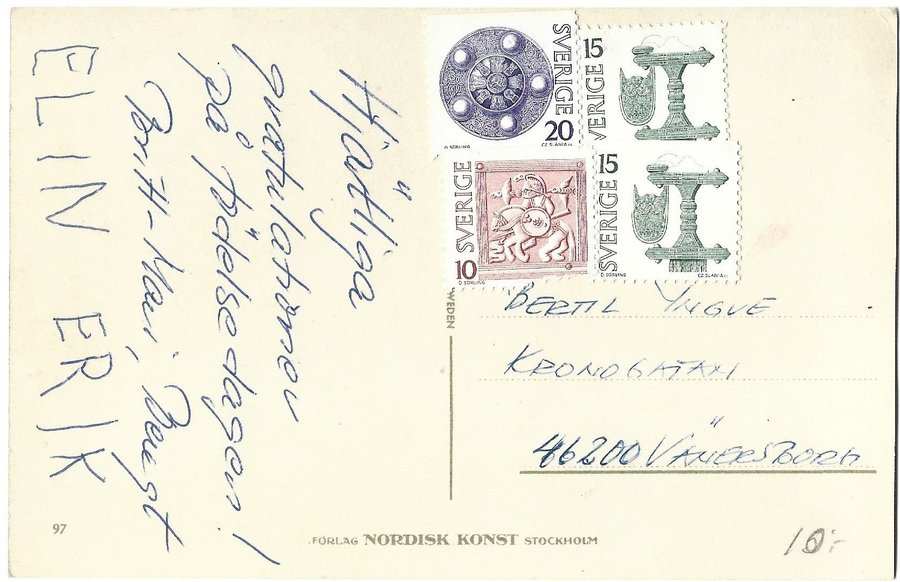 Hjärtliga
gratulationer
på födelsedagen!
Britt-Mari, Bengt
ELIN ERIK
SVERIGE 20
C. SLANIA sc
SVERIGE 15
SVERIGE 10
O. SÖRLING
SVERIGE 15
O. SÖRLING
CZ. SLANIA sc
WEDEN
BERTIL YNGVE
KRONOGATAN
46200 VÄNERSBORG
97
FÖRLAG NORDISK KONST STOCKHOLM
10:-